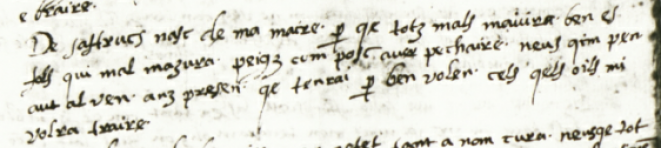 e braire.
De sastrucs nasc de ma maire. per qe totz mals maüira. ben es
fols qui mal mazura. peiqz com posc auer pechaire. neus qim pen
aut al ven. anz presen. qe tenrai per ben volen. cels qels oils mi
volra traire.
tant a nom cura. neusqe tot